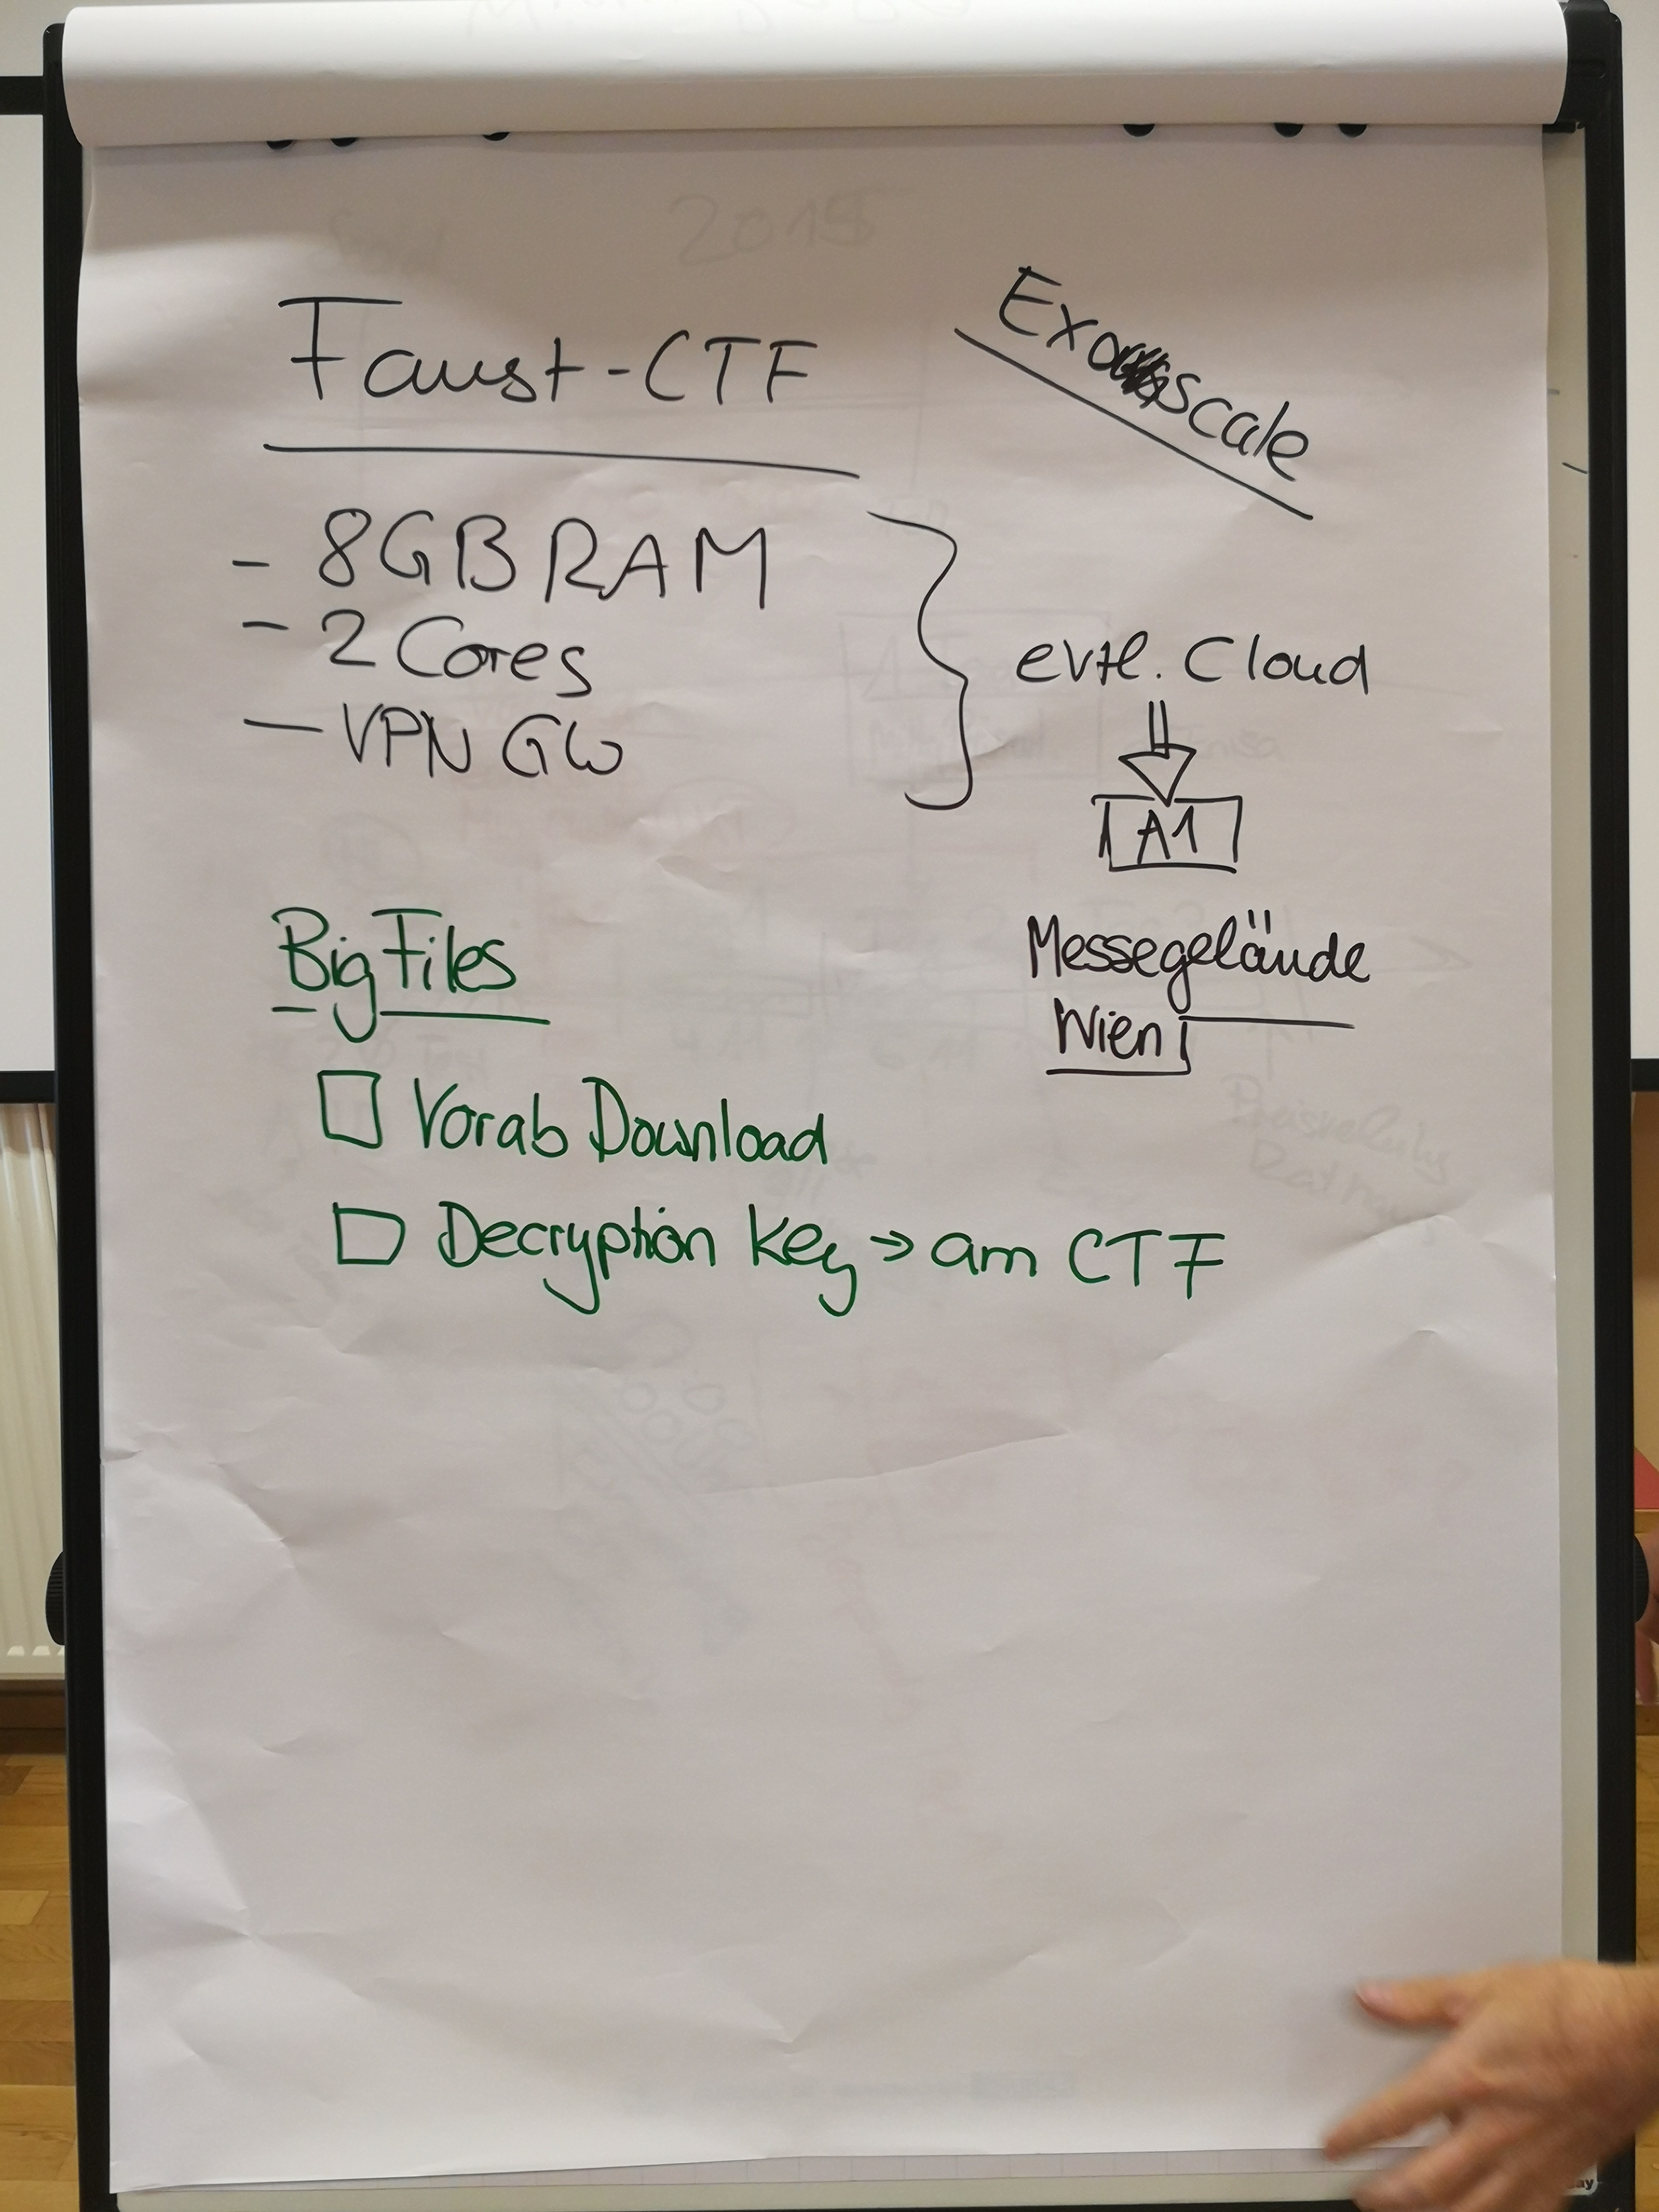 2019
Faust-CTF
Exoscale
- 8GB RAM
- 2 Cores
- VPN GW
evtl. Cloud
A1
Messegelände
Wien
Big Files
Vorab Download
Decryption Key → am CTF